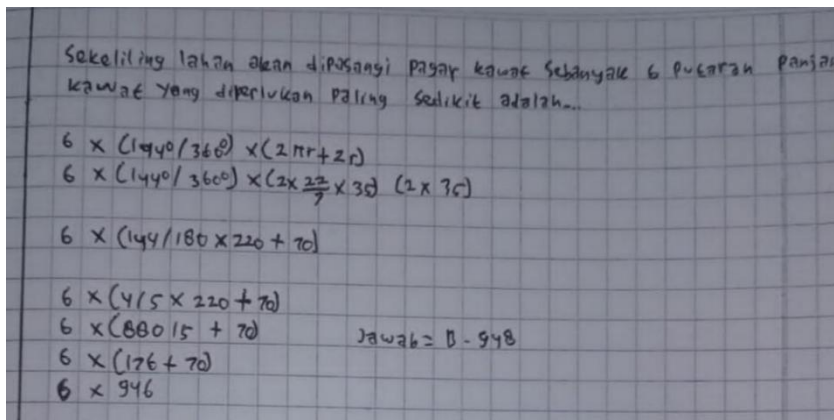 Sekeliling lahan akan dipasangi pagar kawat sebanyak 6 putaran panja
kawat yang diperlukan paling sedikit adalah...
6 × (144°/360°) × (2πr+2r)
6 × (144°/360°) × (2×22/7×35) (2×35)
6 × (144/180 × 220 + 70)
6 × (4/5 × 220 + 70)
6 × (880/5 + 70)
Jawab = B - 948
6 × (176 + 70)
6 × 946